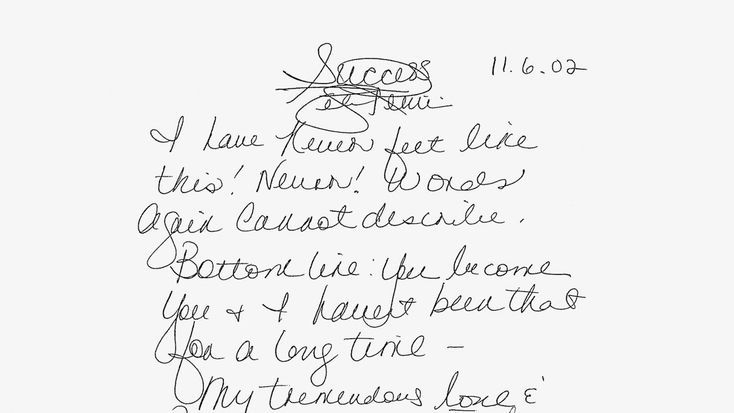 Success 11.6.02
I have never felt like
this! Never! Words
Again Cannot describe.
Bottom line: You become
You + I haven't been that
for a long time –
My tremendous love &